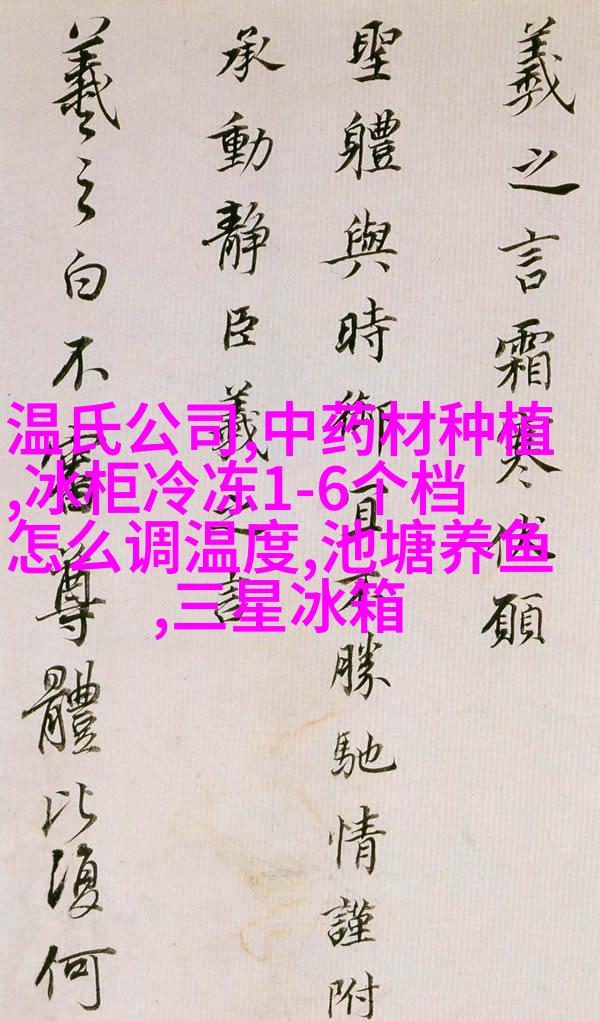 羲之言霜寒伏願
聖體與時御宜不勝馳情謹附
承動靜臣羲之言
羲之白不審尊體比復何
温氏公司,中药材种植
,冰柜冷冻1-6个档
怎么调温度,池塘养鱼
,三星冰箱